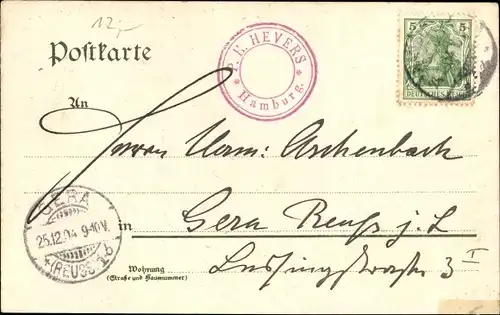 12,-
Postkarte
P. H. HEYERS
* Hamburg. *
5 5
DEUTSCHES REICH
An
Herrn Herm: Aschenbach
in Gera Reuss j. L.
Lessingstrasse 3 I
GERA
25.12.04 9-10V.
* (REUSS) * b
Wohnung
(Straße und Hausnummer)